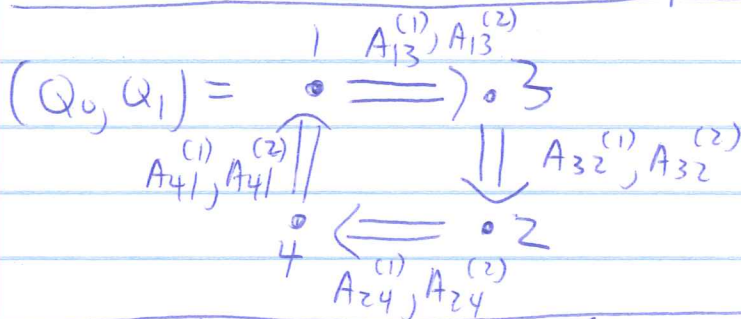 1 A₁₃⁽¹⁾, A₁₃⁽²⁾
(Q₀, Q₁) = · ⇒ · 3
A₄₁⁽¹⁾, A₄₁⁽²⁾ ⇑ ⇓ A₃₂⁽¹⁾, A₃₂⁽²⁾
4 · ⇐ · 2
A₂₄⁽¹⁾, A₂₄⁽²⁾